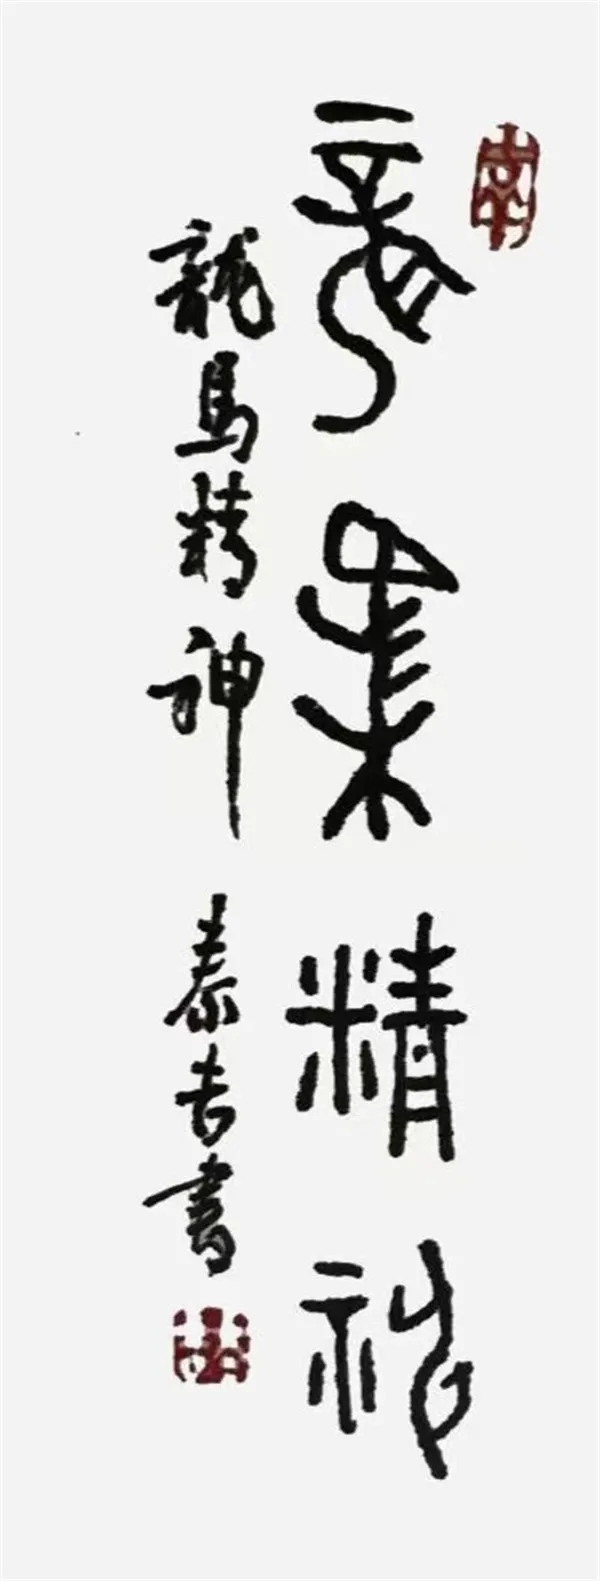 龍馬精神
龍馬精神 泰吉書